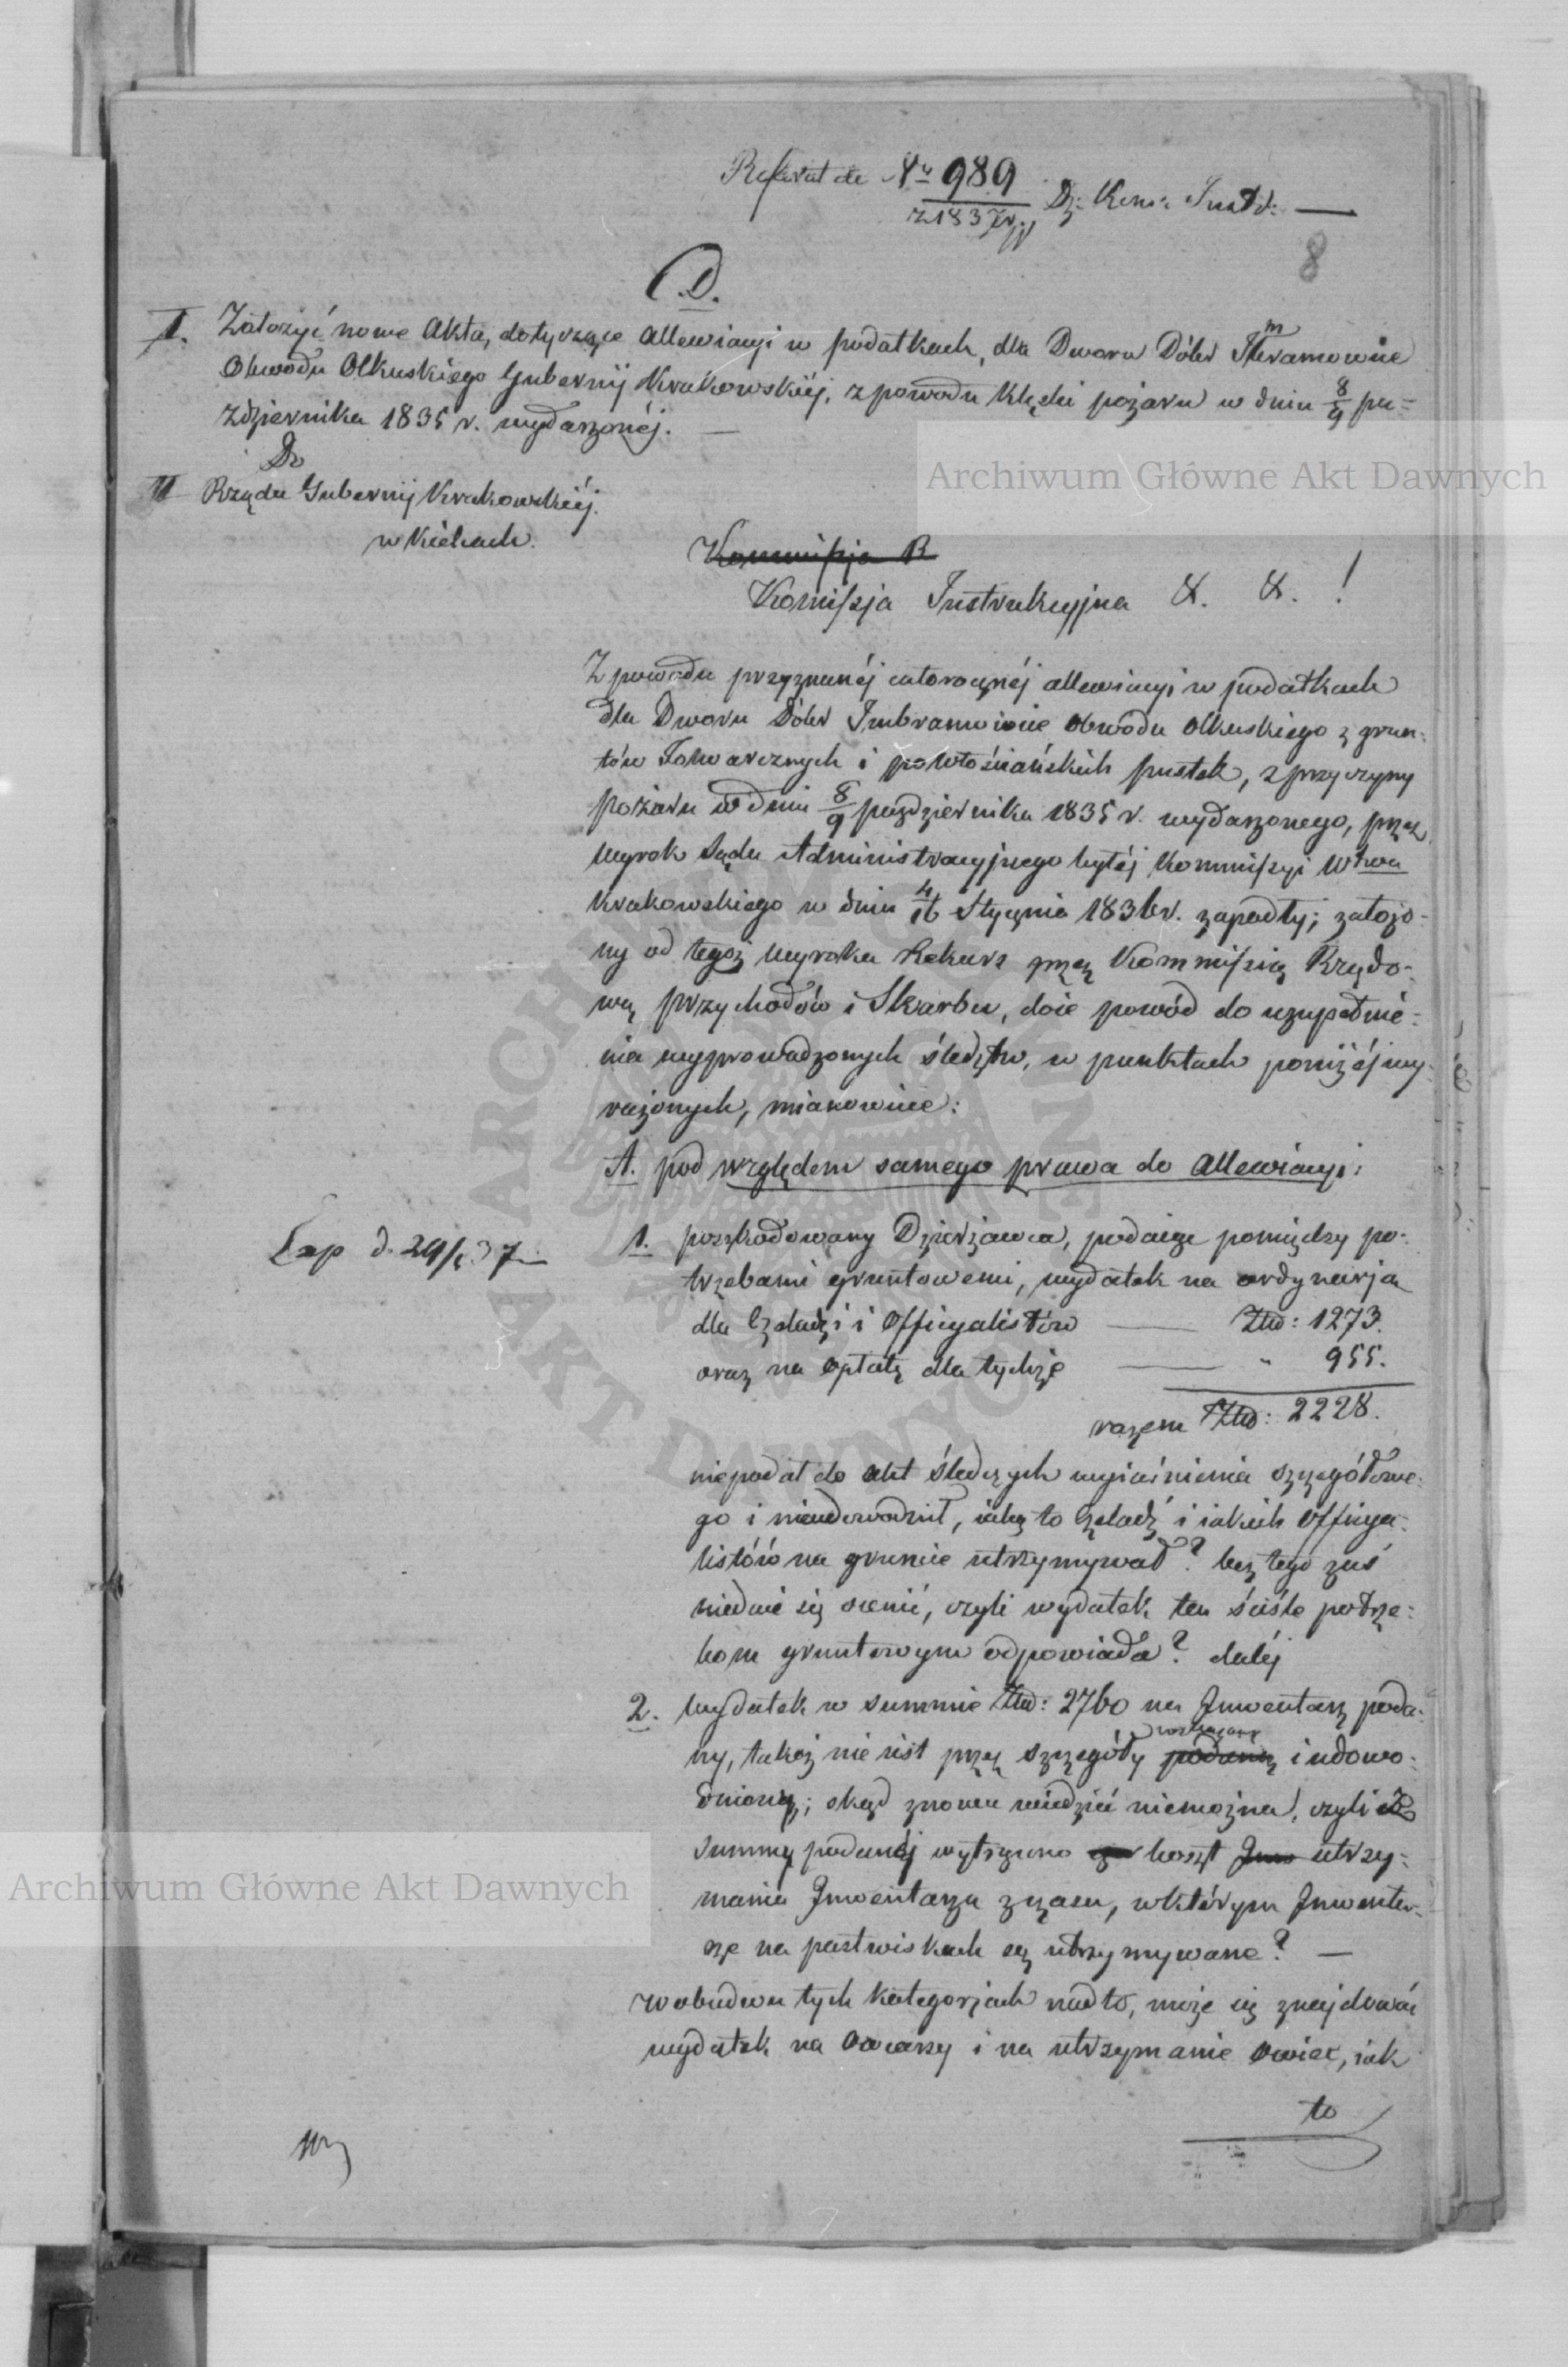 Referat do Nu 989 Dz: Kom: Instr:
z 1837 r.
8
D.
I. Założyć nowe Akta, dotyczące Allewiacyi w podatkach, dla Dworu Dóbr Imbramowice
Obwodu Olkuskiego Gubernij Krakowskiéj, z powodu klęski pożaru w dniu 8/9 pa=
ździernika 1835 r. wydarzonéj. —
Do
II Rządu Gubernij Krakowskiéj.
w Kielcach.
Kommissja R
Komissja Instrukcyjna &. &. !
Z powodu przyznanéj całorocznéj allewiacyi w podatkach
dla Dworu Dóbr Imbramowice Obwodu Olkuskiego z grun=
tów Folwarcznych i powłościańskich pustek, z przyczyny
pożaru w dniu 8/9 października 1835 r. wydarzonego, przez
wyrok Sądu Administracyjnego byłéj Kommissyi Wtwa
Krakowskiego w dniu 4/16 Stycznia 1836 r. zapadły; założo=
ny od tegoż wyroku Rekurs przez Kommissią Rządo=
wą Przychodów i Skarbu, daie powód do uzupełnie=
nia wyprowadzonych śledztw, w punktach poniżéj wy=
rażonych, mianowicie:
A. pod względem samego prawa do Allewiacyi:
Exp d. 29/ 37
1. poszkodowany Dzierżawca, podaiąc pomiędzy po=
trzebami gruntowemi, wydatek na ordynarją
dla Czeladzi i Officyalistów — Złp: 1273.
oraz na opłatę dla tychże — " 955.
razem Złp: 2228.
niepodał do akt śledczych wyiaśnienia szczegółowe=
go i nieudowodnił, iaką to Czeladź i iakich Officya=
listów na gruncie utrzymywał? bez tego zaś
niedaie się ocenić, czyli wydatek ten ściśle potrze=
bom gruntowym odpowiada? daléj
2. wydatek w summie Złp: 2760 na Inwentarz poda=
ny, takoż nie iest przez szczegóły podany wskazany i udowo=
dniony; skąd znowu wiedzieć niemożna, czyli z
summy podanéj wytrącono koszt Inw utrzy=
mania Inwentarza z czasu, w którym Inwenta=
rze na pastwiskach są utrzymywane? —
w obudwu tych kategorjach nadto, może się znajdować
wydatek na Owczarzy i na utrzymanie owiec, iak
to